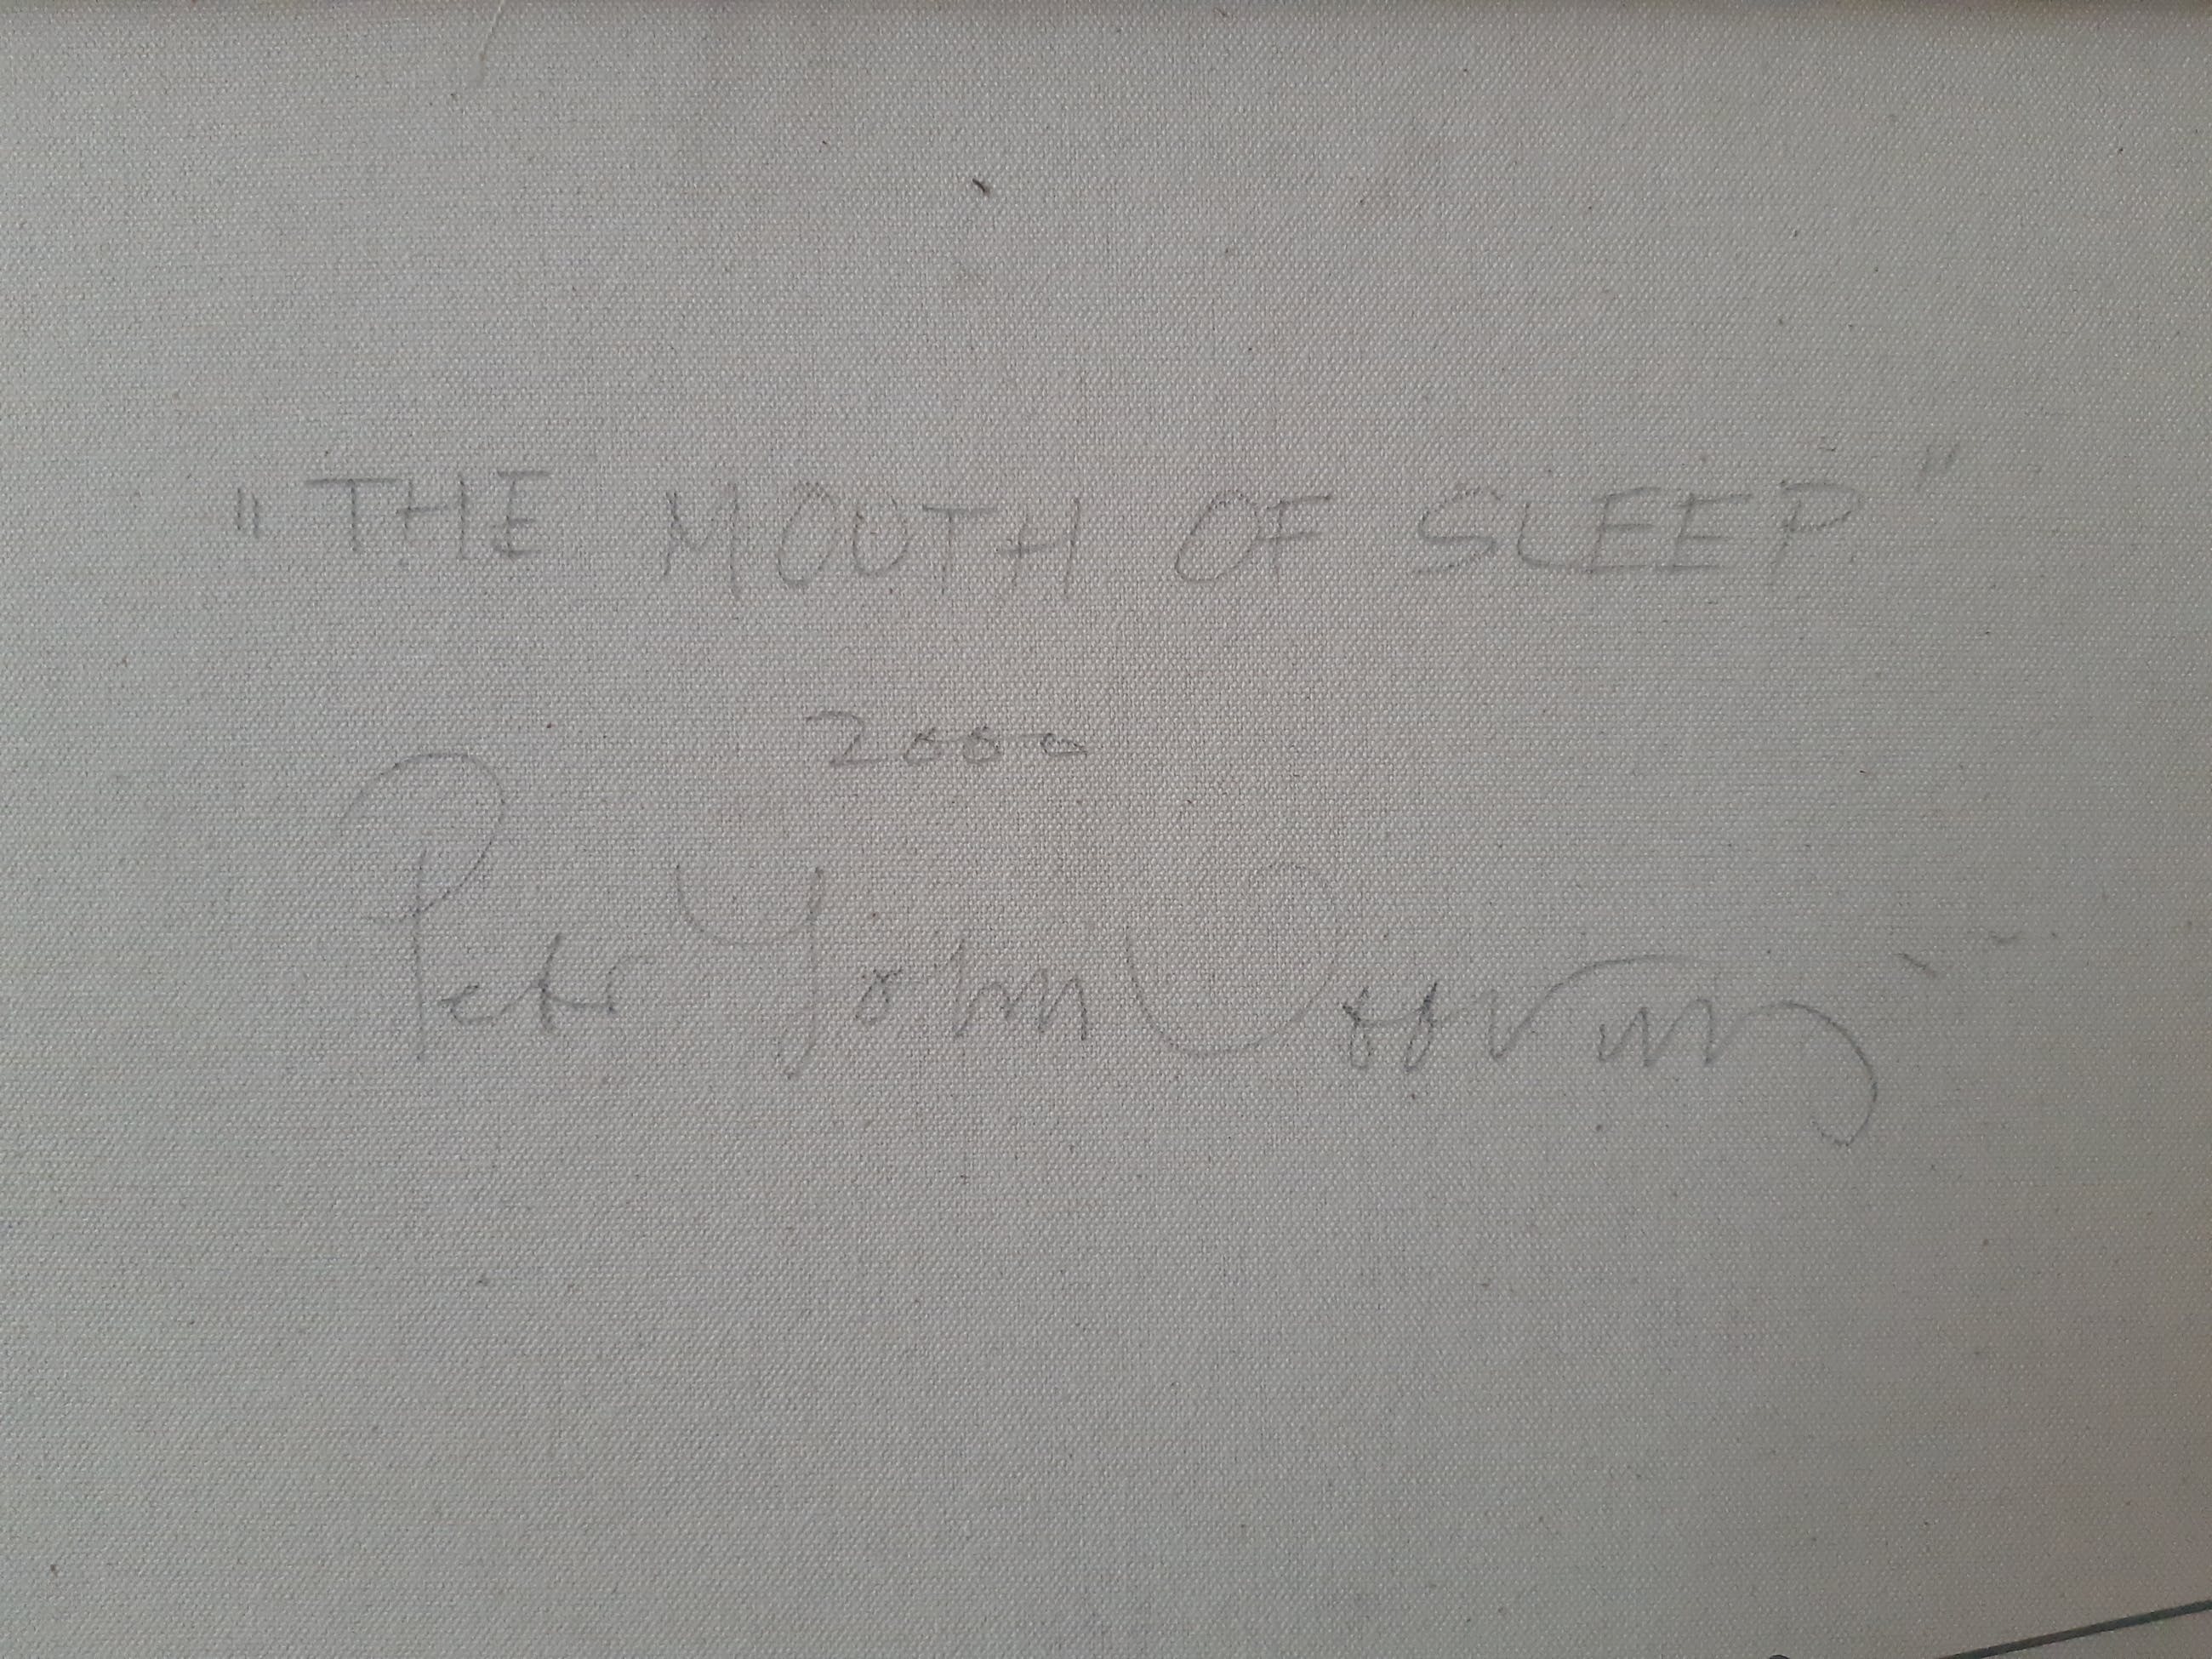 "THE MOUTH OF SLEEP"
2000
Peter John